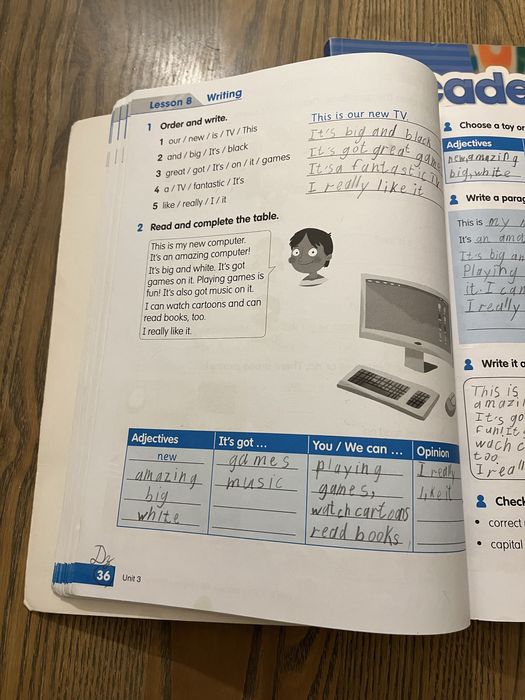 Lesson 8 Writing
1 Order and write.
1 our / new / is / TV / This
This is our new TV.
2 and / big / It's / black
It's big and black
3 great / got / It's / on / it / games
It's got great game
4 a / TV / fantastic / It's
It's a fantastic TV
5 like / really / I / it
I really like it
2 Read and complete the table.
This is my new computer.
It's an amazing computer!
It's big and white. It's got
games on it. Playing games is
fun! It's also got music on it.
I can watch cartoons and can
read books, too.
I really like it.
Adjectives It's got ... You / We can ... Opinion
new games playing I really
amazing music games, like it
big watch cartoons
white read books
36 Unit 3
cade
Choose a toy or
Adjectives
new, amazing
big, white
Write a parag
This is my
It's an ama
It's big an
Playing
it. I can
I really
Write it o
This is
amazi
It's go
Fun!It
wach c
too
I real
Check
• correct
• capital